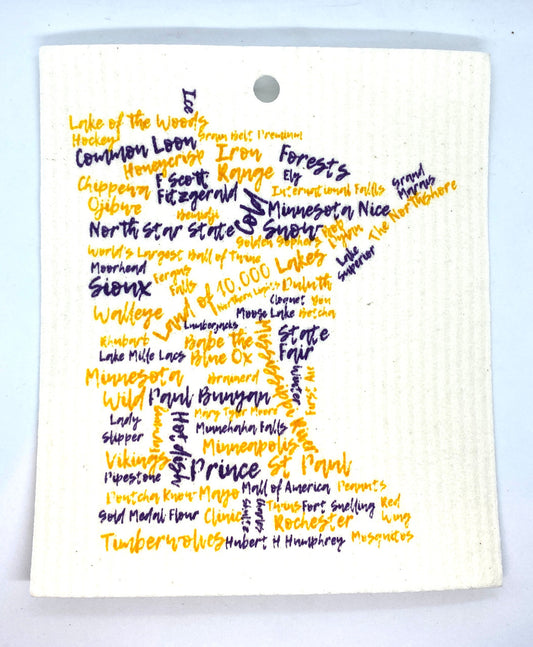 Ice
Lake of the Woods
Hockey
Grain Belt Preminm
Common Loon
Honeycrisp
Iron
Range
Forests
Ely
Chippewa
F Scott
Fitzgerald
International Falls
Grand
Marais
Ojibwe
Bemidji
Cold
Minnesota Nice
The Northshore
North Star State
Snow
Bob
Dylan
Golden Gophers
World's Largest Ball of Twine
Lake
Superior
Moorhead
Fergus
Falls
Sioux
Land of 10,000 Lakes
Northern Lights
Duluth
Cloquet
You
Betcha
Walleye
Lumberjacks
Moose Lake
Rhubarb
Babe the
Blue Ox
Mississippi River
State
Fair
Lake Mille Lacs
Winter
Minnesota
Wild
Brainerd
First Ave
Paul Bunyan
Lady
Slipper
Hotdish
Mary Tyler Moore
Minnehaha Falls
Minneapolis
Vikings
Pipestone
Prince
St Paul
Dontcha Know
Mayo
Clinic
Mall of America
Peanuts
Gold Medal Flour
Charles
Shultz
Twins
Fort Snelling
Red
Wing
Rochester
Timberwolves
Hubert H Humphrey
Mosquitos